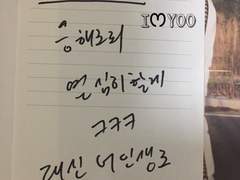 I♡YOO
응 해오리
열심히할게
ㅋㅋㅋ
대신 너인생도